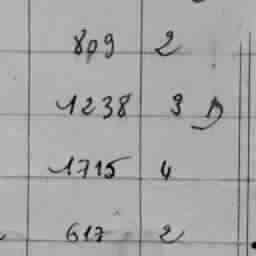 809 2
1238 3
1715 4
617 2